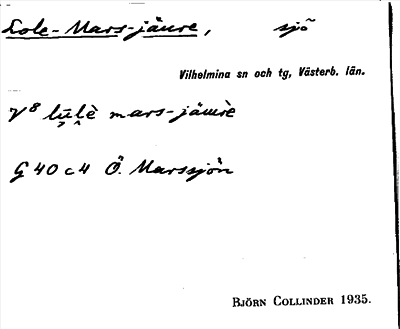 Lole-Mars-jäure, sjö
Vilhelmina sn och tg, Västerb. län.
V⁸ lū̜lè mars-jäurè
G 40 c 4 Ö. Marssjön
BJÖRN COLLINDER 1935.